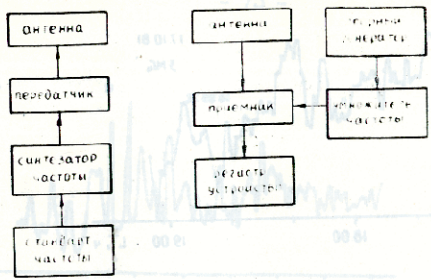 антенна
передатчик
синтезатор
частоты
стандарт
частоты
антенна
приемник
устройство
генератор
умножитель
частоты
18 00
19 00